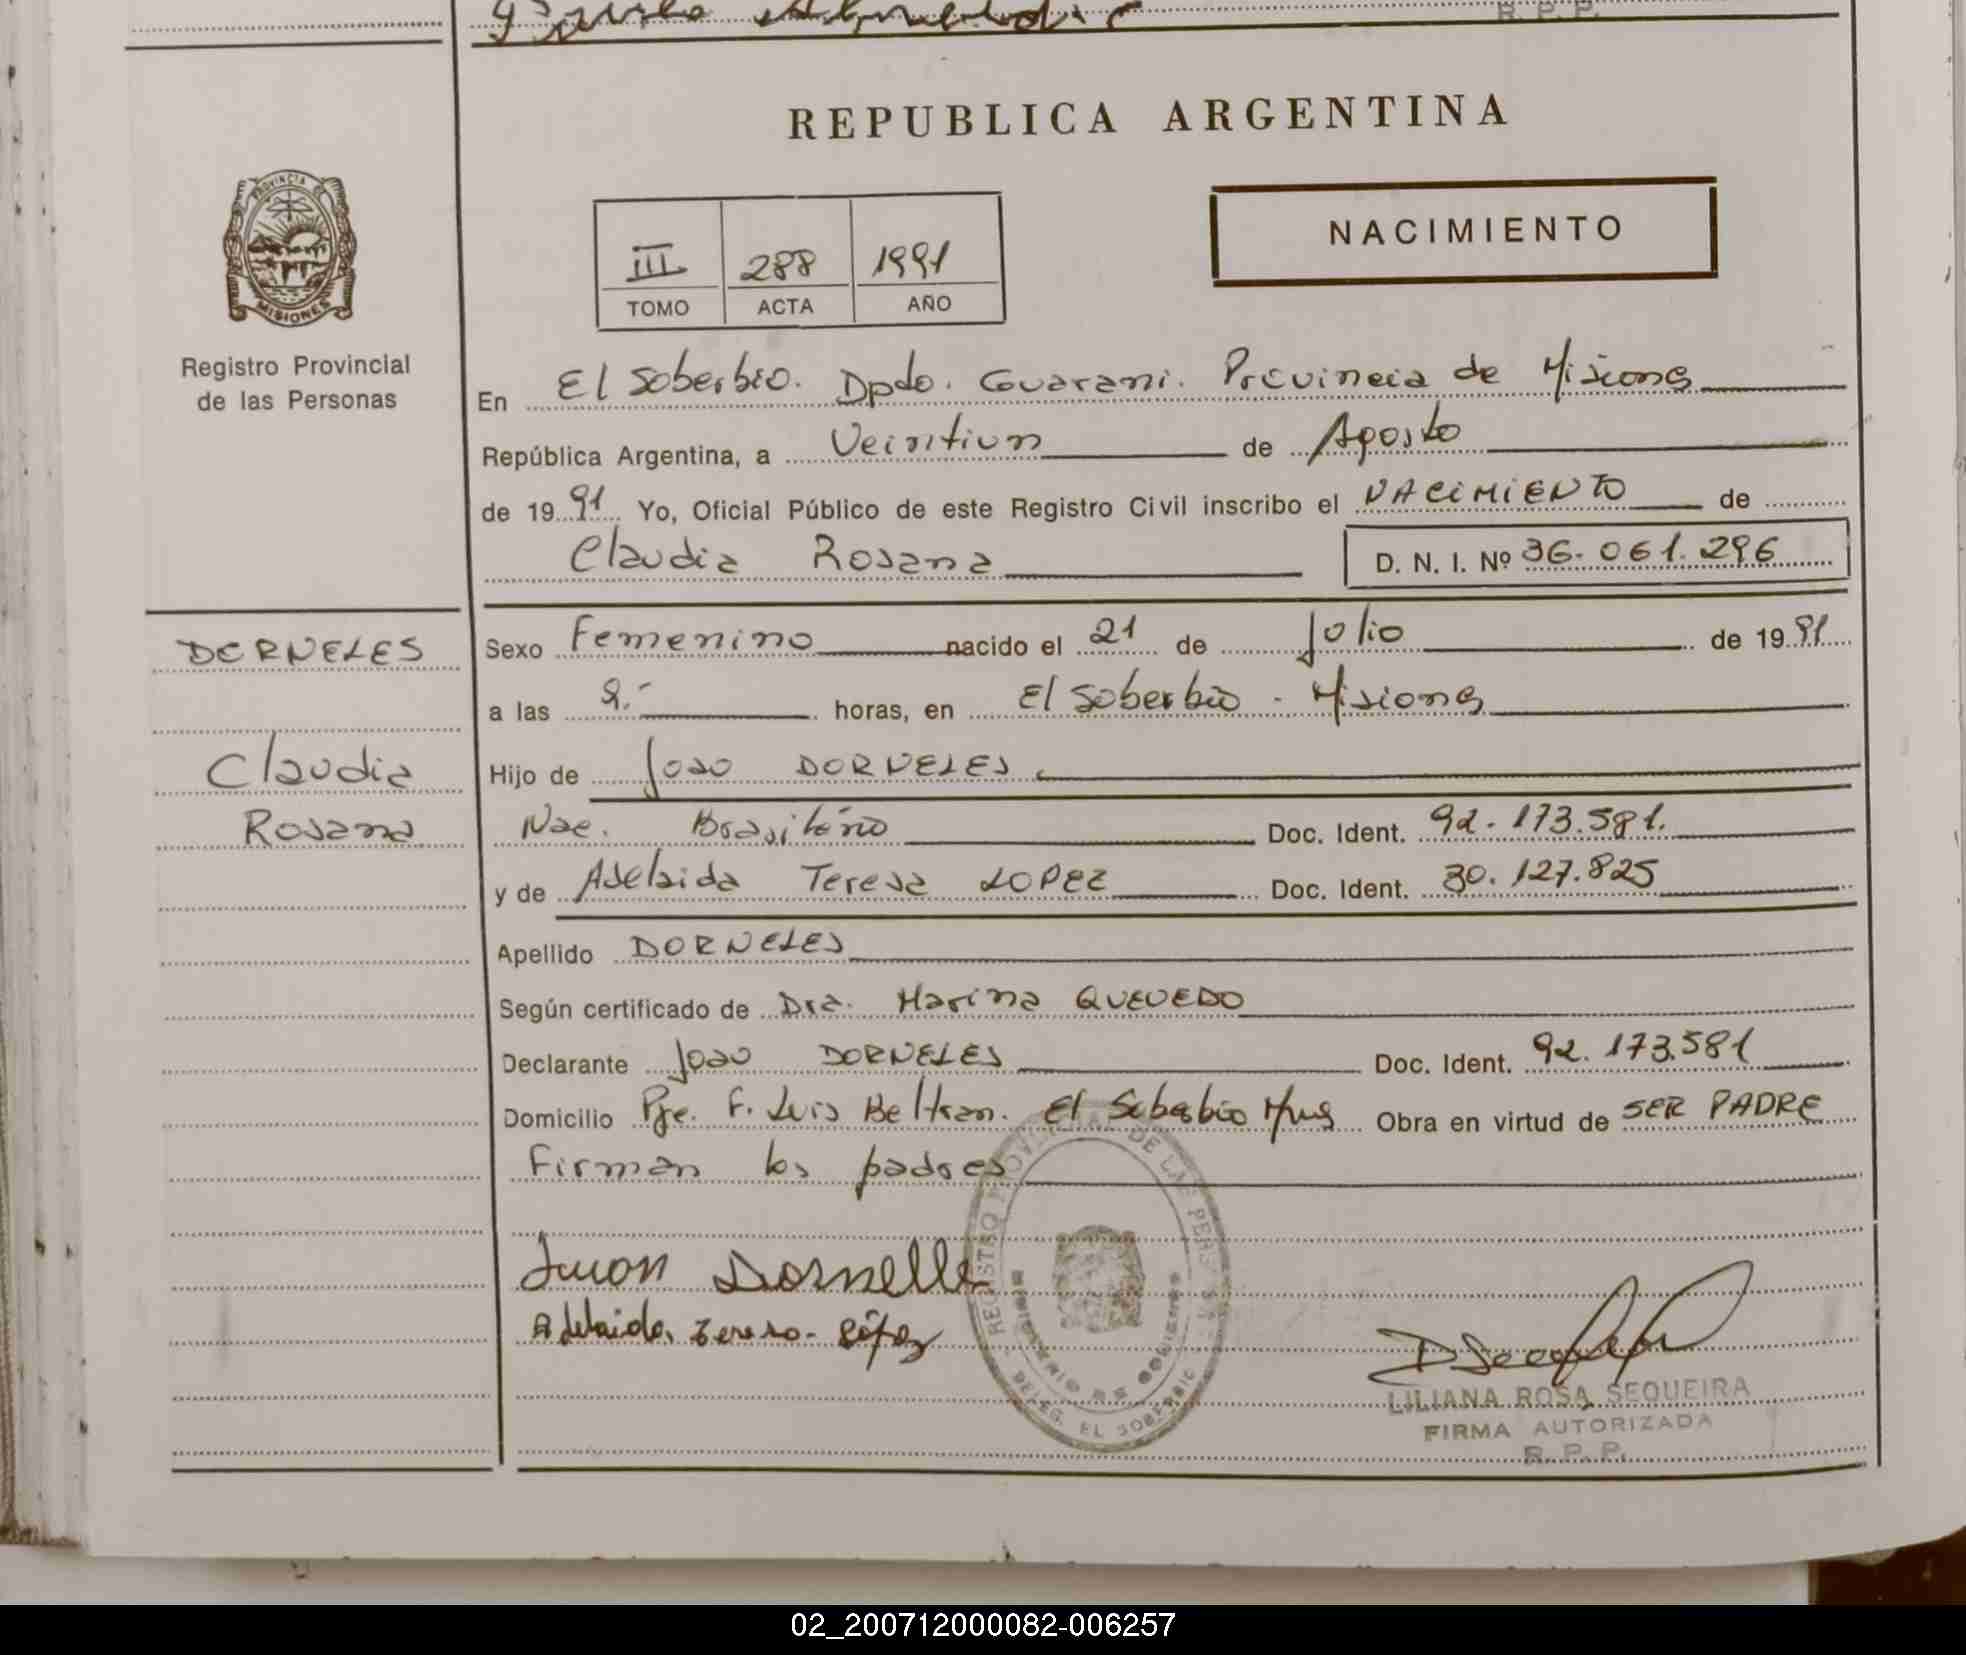 R. P. P.
REPUBLICA ARGENTINA
PROVINCIA DE
MISIONES
Registro Provincial
de las Personas
NACIMIENTO
III 288 1991
TOMO ACTA AÑO
En El Soberbio. Dpdo. Guarani. Provincia de Misiones
República Argentina, a Veintiun de Agosto
de 1991 Yo, Oficial Público de este Registro Civil inscribo el NACIMIENTO de
Claudia Rosana D. N. I. Nº 36.061.296
DORNELES
Claudia
Rosana
Sexo Femenino nacido el 21 de Julio de 1991
a las 9.- horas, en El Soberbio - Misiones
Hijo de Joao DORNELES
Nac. Brasileño Doc. Ident. 92.173.581.
y de Adelaida Teresa LOPEZ Doc. Ident. 30.127.825
Apellido DORNELES
Según certificado de Dra. Marina QUEVEDO
Declarante Joao DORNELES Doc. Ident. 92.173.581
Domicilio Pje. F. Luis Beltran. El Soberbio Mnes Obra en virtud de SER PADRE
Firman los padres
Juan Dornelle
Adelaida Tereso Lópes
REGISTRO PROVINCIAL DE LAS PERSONAS
MINISTERIO DE GOBIERNO
DELEG. EL SOBERBIO
LILIANA ROSA SEQUEIRA
FIRMA AUTORIZADA
R. P. P.
02_200712000082-006257